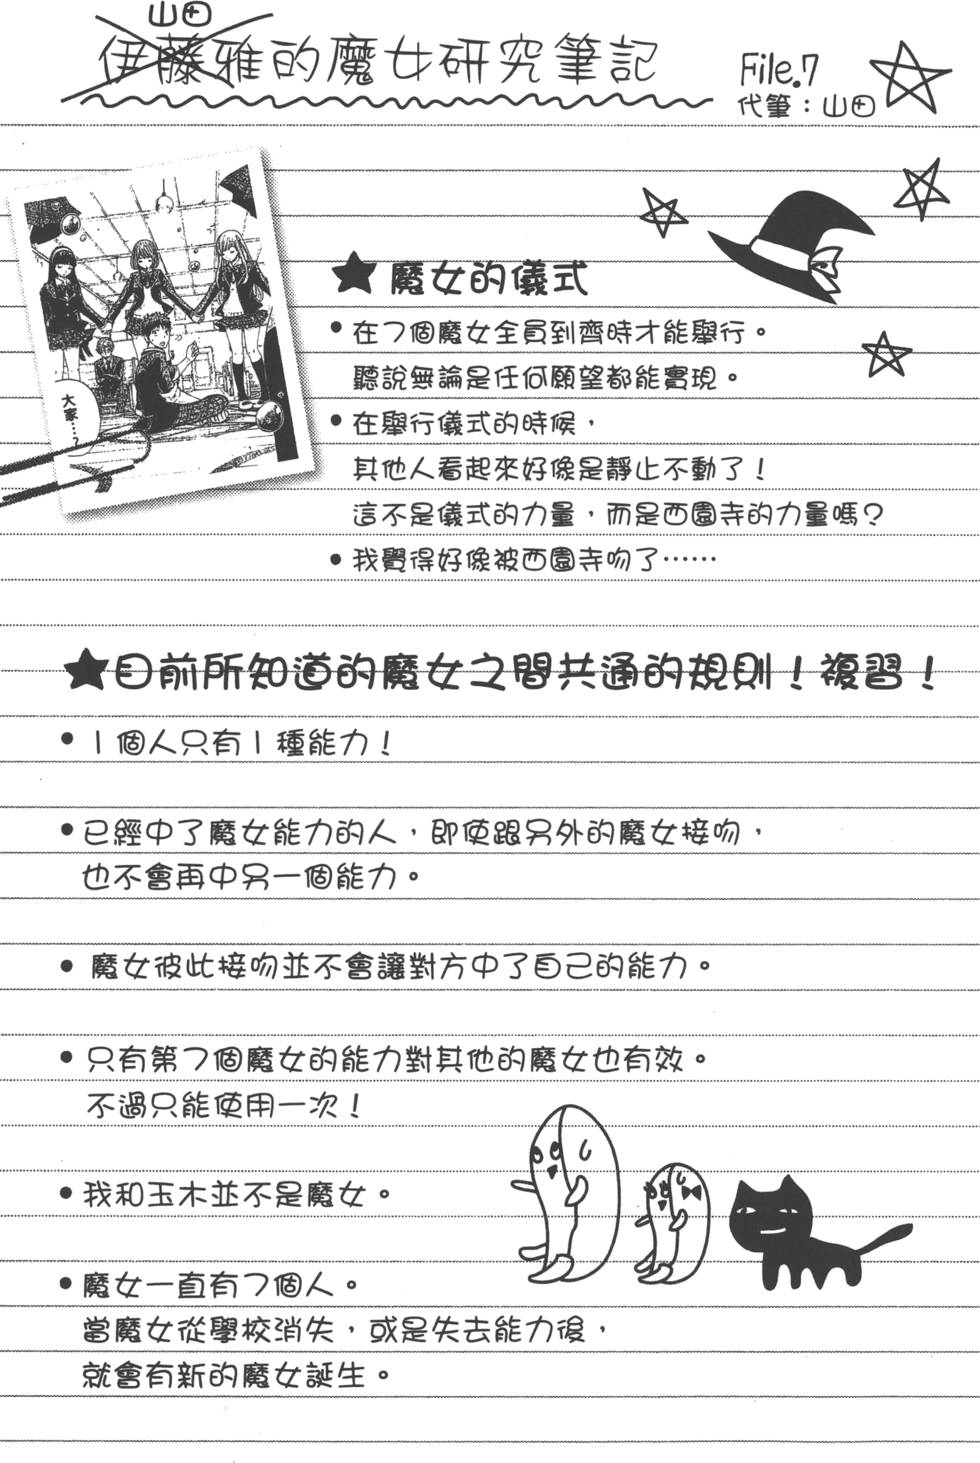 山田
伊藤雅的魔女研究筆記
File.7
代筆：山田
大家…?
★魔女的儀式
•在7個魔女全員到齊時才能舉行。
聽說無論是任何願望都能實現。
•在舉行儀式的時候，
其他人看起來好像是靜止不動了！
這不是儀式的力量，而是西園寺的力量嗎？
•我覺得好像被西園寺吻了……
★目前所知道的魔女之間共通的規則！複習！
•1個人只有1種能力！
•已經中了魔女能力的人，即使跟另外的魔女接吻，
也不會再中另一個能力。
•魔女彼此接吻並不會讓對方中了自己的能力。
•只有第7個魔女的能力對其他的魔女也有效。
不過只能使用一次！
•我和玉木並不是魔女。
•魔女一直有7個人。
當魔女從學校消失，或是失去能力後，
就會有新的魔女誕生。